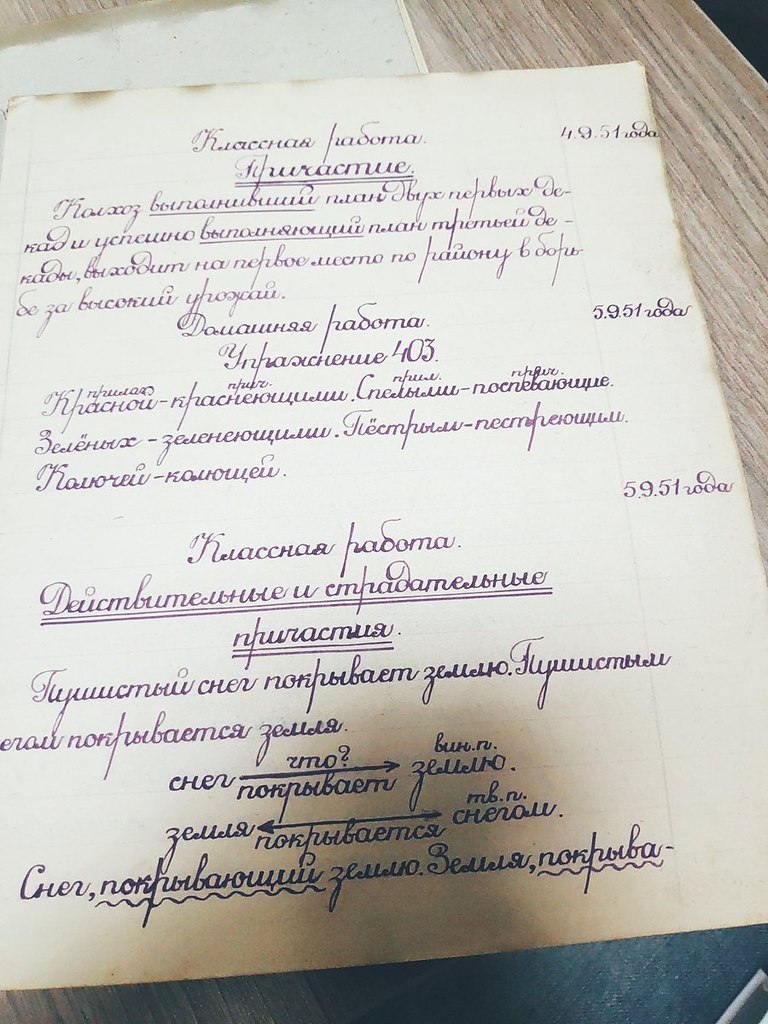 4.9.51 года
Классная работа.
Причастие.
Колхоз выполнивший план двух первых де-
кад и успешно выполняющий план третьей де-
кады, выходит на первое место по району в борь-
бе за высокий урожай.
5.9.51 года
Домашняя работа.
Упражнение 403.
прилаг. прич. прил. прич.
Красной - краснеющими. Спелыми - поспевающие.
Зелёных - зеленеющими. Пёстрым - пестреющим.
Колючей - колющей.
5.9.51 года
Классная работа.
Действительные и страдательные
причастия.
Пушистый снег покрывает землю. Пушистым
снегом покрывается земля.
что? вин.п.
снег покрывает землю.
тв.п.
земля покрывается снегом.
Снег, покрывающий землю. Земля, покрыва-